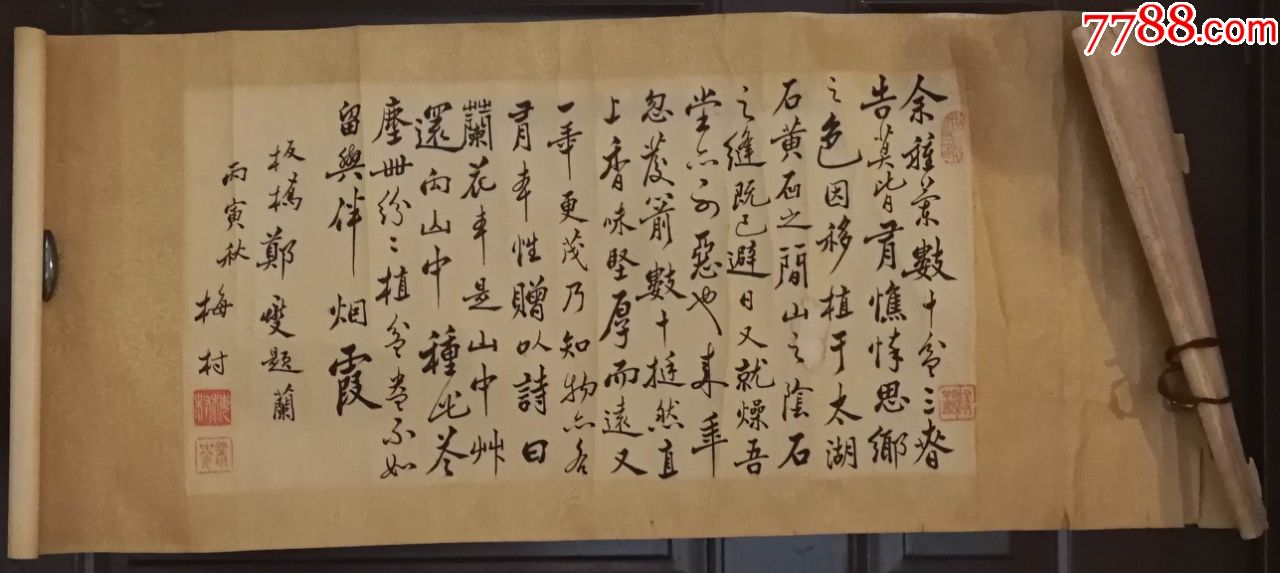 7788.com
余種蘭數十盆三春
告莫皆有憔悴思鄉
之色因移植于太湖
石黃石之間山之陰石
之縫既已避日又就燥吾
堂亦不惡也來年
忽發箭數十挺然直
上香味堅厚而遠又
一年更茂乃知物亦各
有本性贈以詩曰
蘭花本是山中艸
還向山中種此花
塵世紛〻植盆盎不如
留與伴烟霞
板橋鄭燮題蘭
丙寅秋
梅村